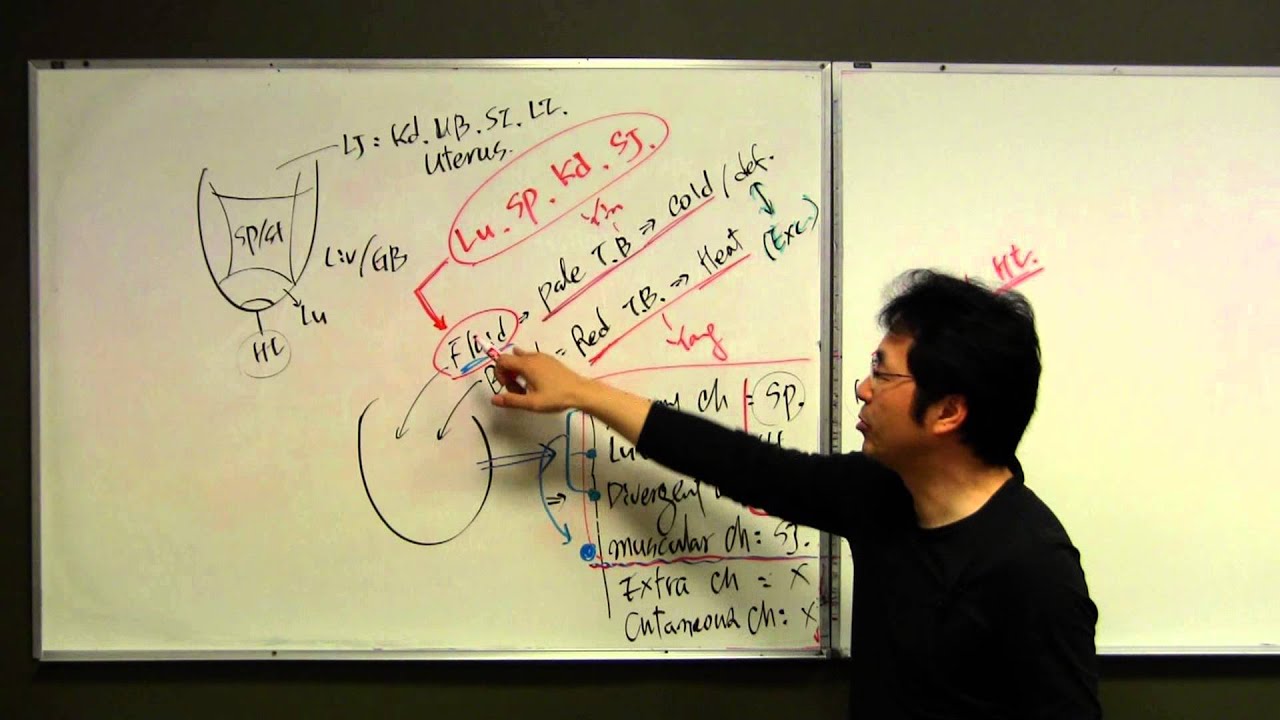 LJ: Kd. UB. SI. LI.
Uterus.
Sp/st
Liv/GB
Lu
Ht
Lu. Sp. Kd. SJ.
Yin
Fluid ⇒ pale T.B ⇒ cold/def.
= Red T.B. ⇒ Heat (Exc)
Yang
Ht.
ch = Sp.
Lu
Divergent
muscular ch: SJ.
Extra ch = x
Cutaneous ch: x